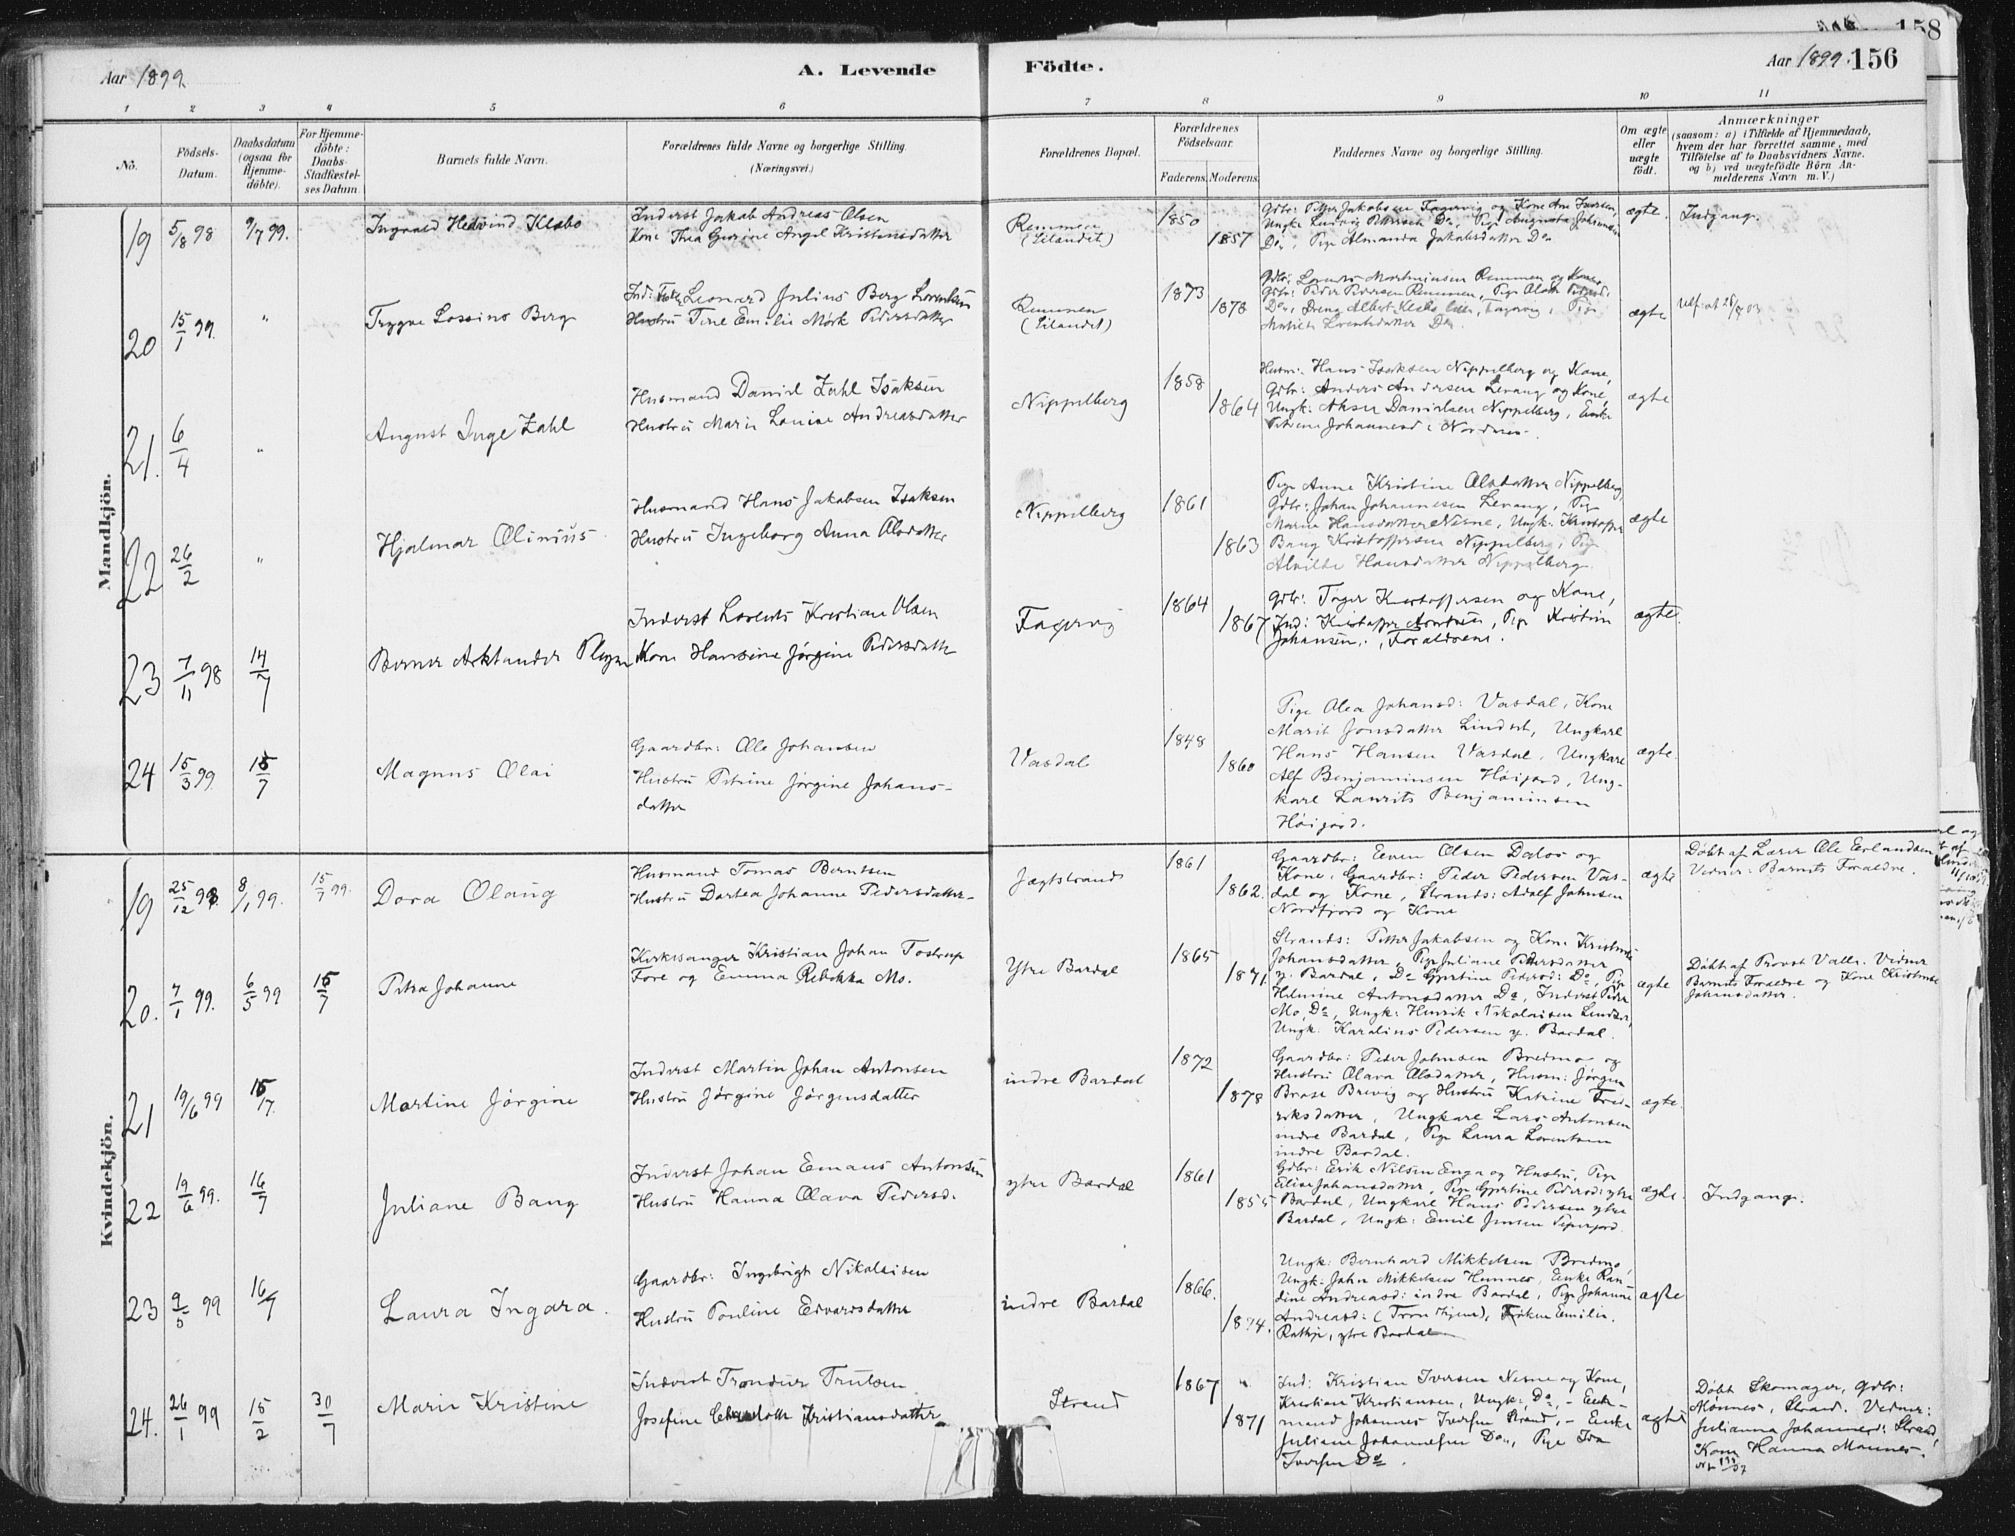 158
Aar 1899. A. Levende Födte. Aar 1899. 156
1 2 3 4 5 6 7 8 9 10 11
No. Födsels-Datum. Daabsdatum (ogsaa for Hjemmedöbte). For Hjemmedöbte: Daabs-Stadfæstelses Datum. Barnets fulde Navn. Forældrenes fulde Navne og borgerlige Stilling. (Næringsvei.) Forældrenes Bopæl. Forældrenes Födselsaar. Faderens. Moderens. Faddernes Navne og borgerlige Stilling. Om ægte eller uægte födt. Anmærkninger (saasom: a) i Tilfælde af Hjemmedaab, hvem der har forrettet samme, med Tilföielse af to Daabsvidners Navne. og b) ved uægtefödte Börn Anmelderens Navn m. V.)
Mandkjön.
19 5/8 98 9/7 99.
Inderst Jakab Andreas Olsen
Kone Thea Gurine Angel Kristensdatter
Remmen
1850
1857
Gdbr: Petter Jakobsen Fagervig og Kone
Do, Pige Almanda Jakobsdatter Do
ægte.
Indgang.
20 15/1 99. "
Trygve Lossius Berg
Leonard Julius Berg Lorentsen
Hustru Tine Emilie Mörk Pedersdatter
Remmen
1873
1878
ægte
21. 6/4 "
August Inge Zahl
Husmand Daniel Zahl Isaksen
Hustru Marie Lovise Andreasdatter
Nippelberg
1858
1864
Husm: Hans Isaksen Nippelberg og Kone,
Gdbr: Anders Andersen Levang og Kone,
Ungk: Aksen Danielsen Nippelberg, Enke
ægte
22 26/2 "
Hjalmar Olinius
Husmand Hans Jakobsen Isaksen
Hustru Ingeborg Anna Olsdatter
Nippelberg
1861
1863
Pige Anne Kristine Olsdatter Nippelberg
Gdbr: Johan Johannesen Levang, Pige
Marie Hansdatter Nesne, Ungk: Kristoffer
Bang Kristoffersen Nippelberg, Pige
Alvilde Hansdatter Nippelberg.
ægte
23 7/11 98 14/7
Inderst Lorents Kristian Olsen
Kone Hansine Jörgine Pedersdatter
Fagervig
1864
1867
Gdbr: Kristoffersen og Kone,
Ind: Kristoffer, Pige Kristine
Johansen, Forældrene.
ægte.
24 15/3 99. 15/7
Magnus Olai
Gaardbr: Ole Johansen
Hustru Petrine Jörgine Johans-
datter
Vasdal
1848
1860
Pige Olea Johansd: Vasdal, Kone
Marit Jonsdatter Lindset, Ungkarl
Hans Hansen Vasdal, Ungkarl
Alf Benjaminsen Höigard, Ung-
karl Laurits Benjaminsen
Höigard.
ægte.
Kvindekjön.
19 25/12 98 8/1 99. 15/7 99.
Dora Olaug
Husmand Tomas Berntsen
Hustru Dortea Johanne Pedersdatter
Jægtstrand
1861
1862.
Gaardbr: Even Olsen Dalos og
Kone, Gaardbr: Peder Pedersen Vas-
dal og Kone, Strands: Adolf Johnsen
Nordfjord og Kone
ægte
Döbt af Lærer Ole Erlandsen
Vidner: Barnets Forældre.
20. 7/1 99. 6/5 99 15/7
Petra Johanne
Kirkesanger Kristian Johan Tostrup
Fore og Emma Rebekka Mo.
Ytre Bardal
1865
1871.
Strands: Petter Jakobsen og Kone Kristine
Johansdatter, Pige Juliane Pedersdatter
y. Bardal, Do Gjertine Pedersd: Do, Pige
Helmine Antonsdatter Do, Inderst Peder
Mo, Do, Ungk: Henrik Nikolaisen Lindset,
Ungk: Karelius Pedersen y. Bardal.
ægte
Döbt af Provst Valle. Vidner
Barnets Forældre og Kone Kristine
Johansdatter.
21 19/6 99 15/7.
Martine Jörgine
Inderst Martin Johan Antonsen
Hustru Jörgine Jörgensdatter
indre Bardal
1872
1878
Gaardbr: Peder Johnsen Bredmo og
Hustru Olava Olsdatter, Husm: Jörgen
Brase Brevig og Hustru Katrine Fred-
riksdatter, Ungkarl Lars Antonsen
indre Bardal, Pige Laura Lorentsen
indre Bardal.
ægte.
22 19/6 99. 16/7
Juliane Bang
Inderst Johan Emaus Antonsen
Hustru Hanna Olava Pedersd.
ytre Bardal
1861
1855
Gdbr: Erik Nilsen Enga og Hustru, Pige
Elise Johansdatter, Pige Gjertine Pedersd: ytre
Bardal, Ungkarl Hans Pedersen ytre
Bardal, Ungk: Emil Jensen
ægte.
Indgang.
23 9/5 99 16/7
Laura Ingara.
Gaardbr: Ingebrigt Nikolaisen
Hustru Pouline Edvardsdatter
indre Bardal
1866.
1874.
Ungk: Bernhard Mikkelsen Bredmo,
Ungk: John Mikkelsen Hemnes, Enke Ran-
dine Andreasd: indre Bardal, Pige Johanne
Andreasd:, Fröken Emilie
Rathje, ytre Bardal
ægte
24. 26/1 99 15/2 30/7
Marie Kristine
Inderst Tronduer Trulsen
Josefine Kristiansdatter
Strand
1867
1871
Ind: Kristian Iversen Nesne og Kone,
Kristian Kristiansen, Ungk: Do, - Enke-
mand Johannes Iversen Strand, - Enke
Juliane Johannesen Do, Pige Ida
Iversen Do.
ægte
Döbt Skomager, Gdbr:
Mönnes, Strand. Vidner:
Julianna Johannesd: Strand,
Kone Hanna Monnes.